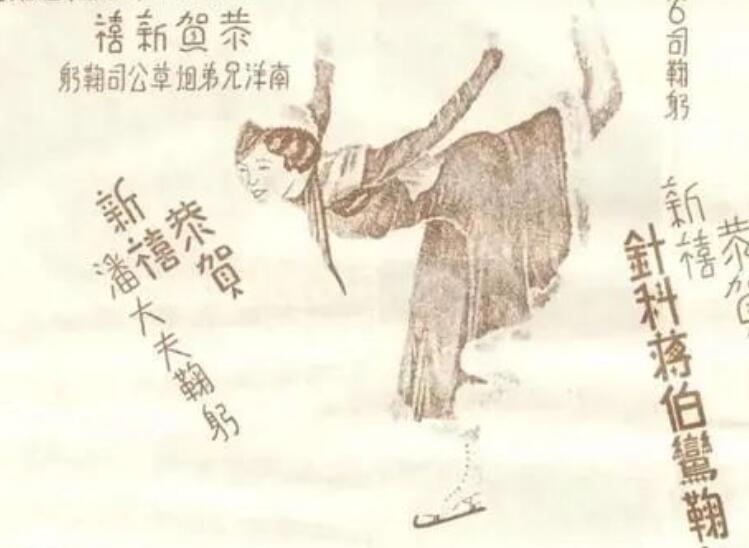 恭賀新禧
南洋兄弟烟草公司鞠躬
司鞠躬
恭賀
新禧
潘大夫鞠躬
恭賀
新禧
針科蔣伯鸞鞠